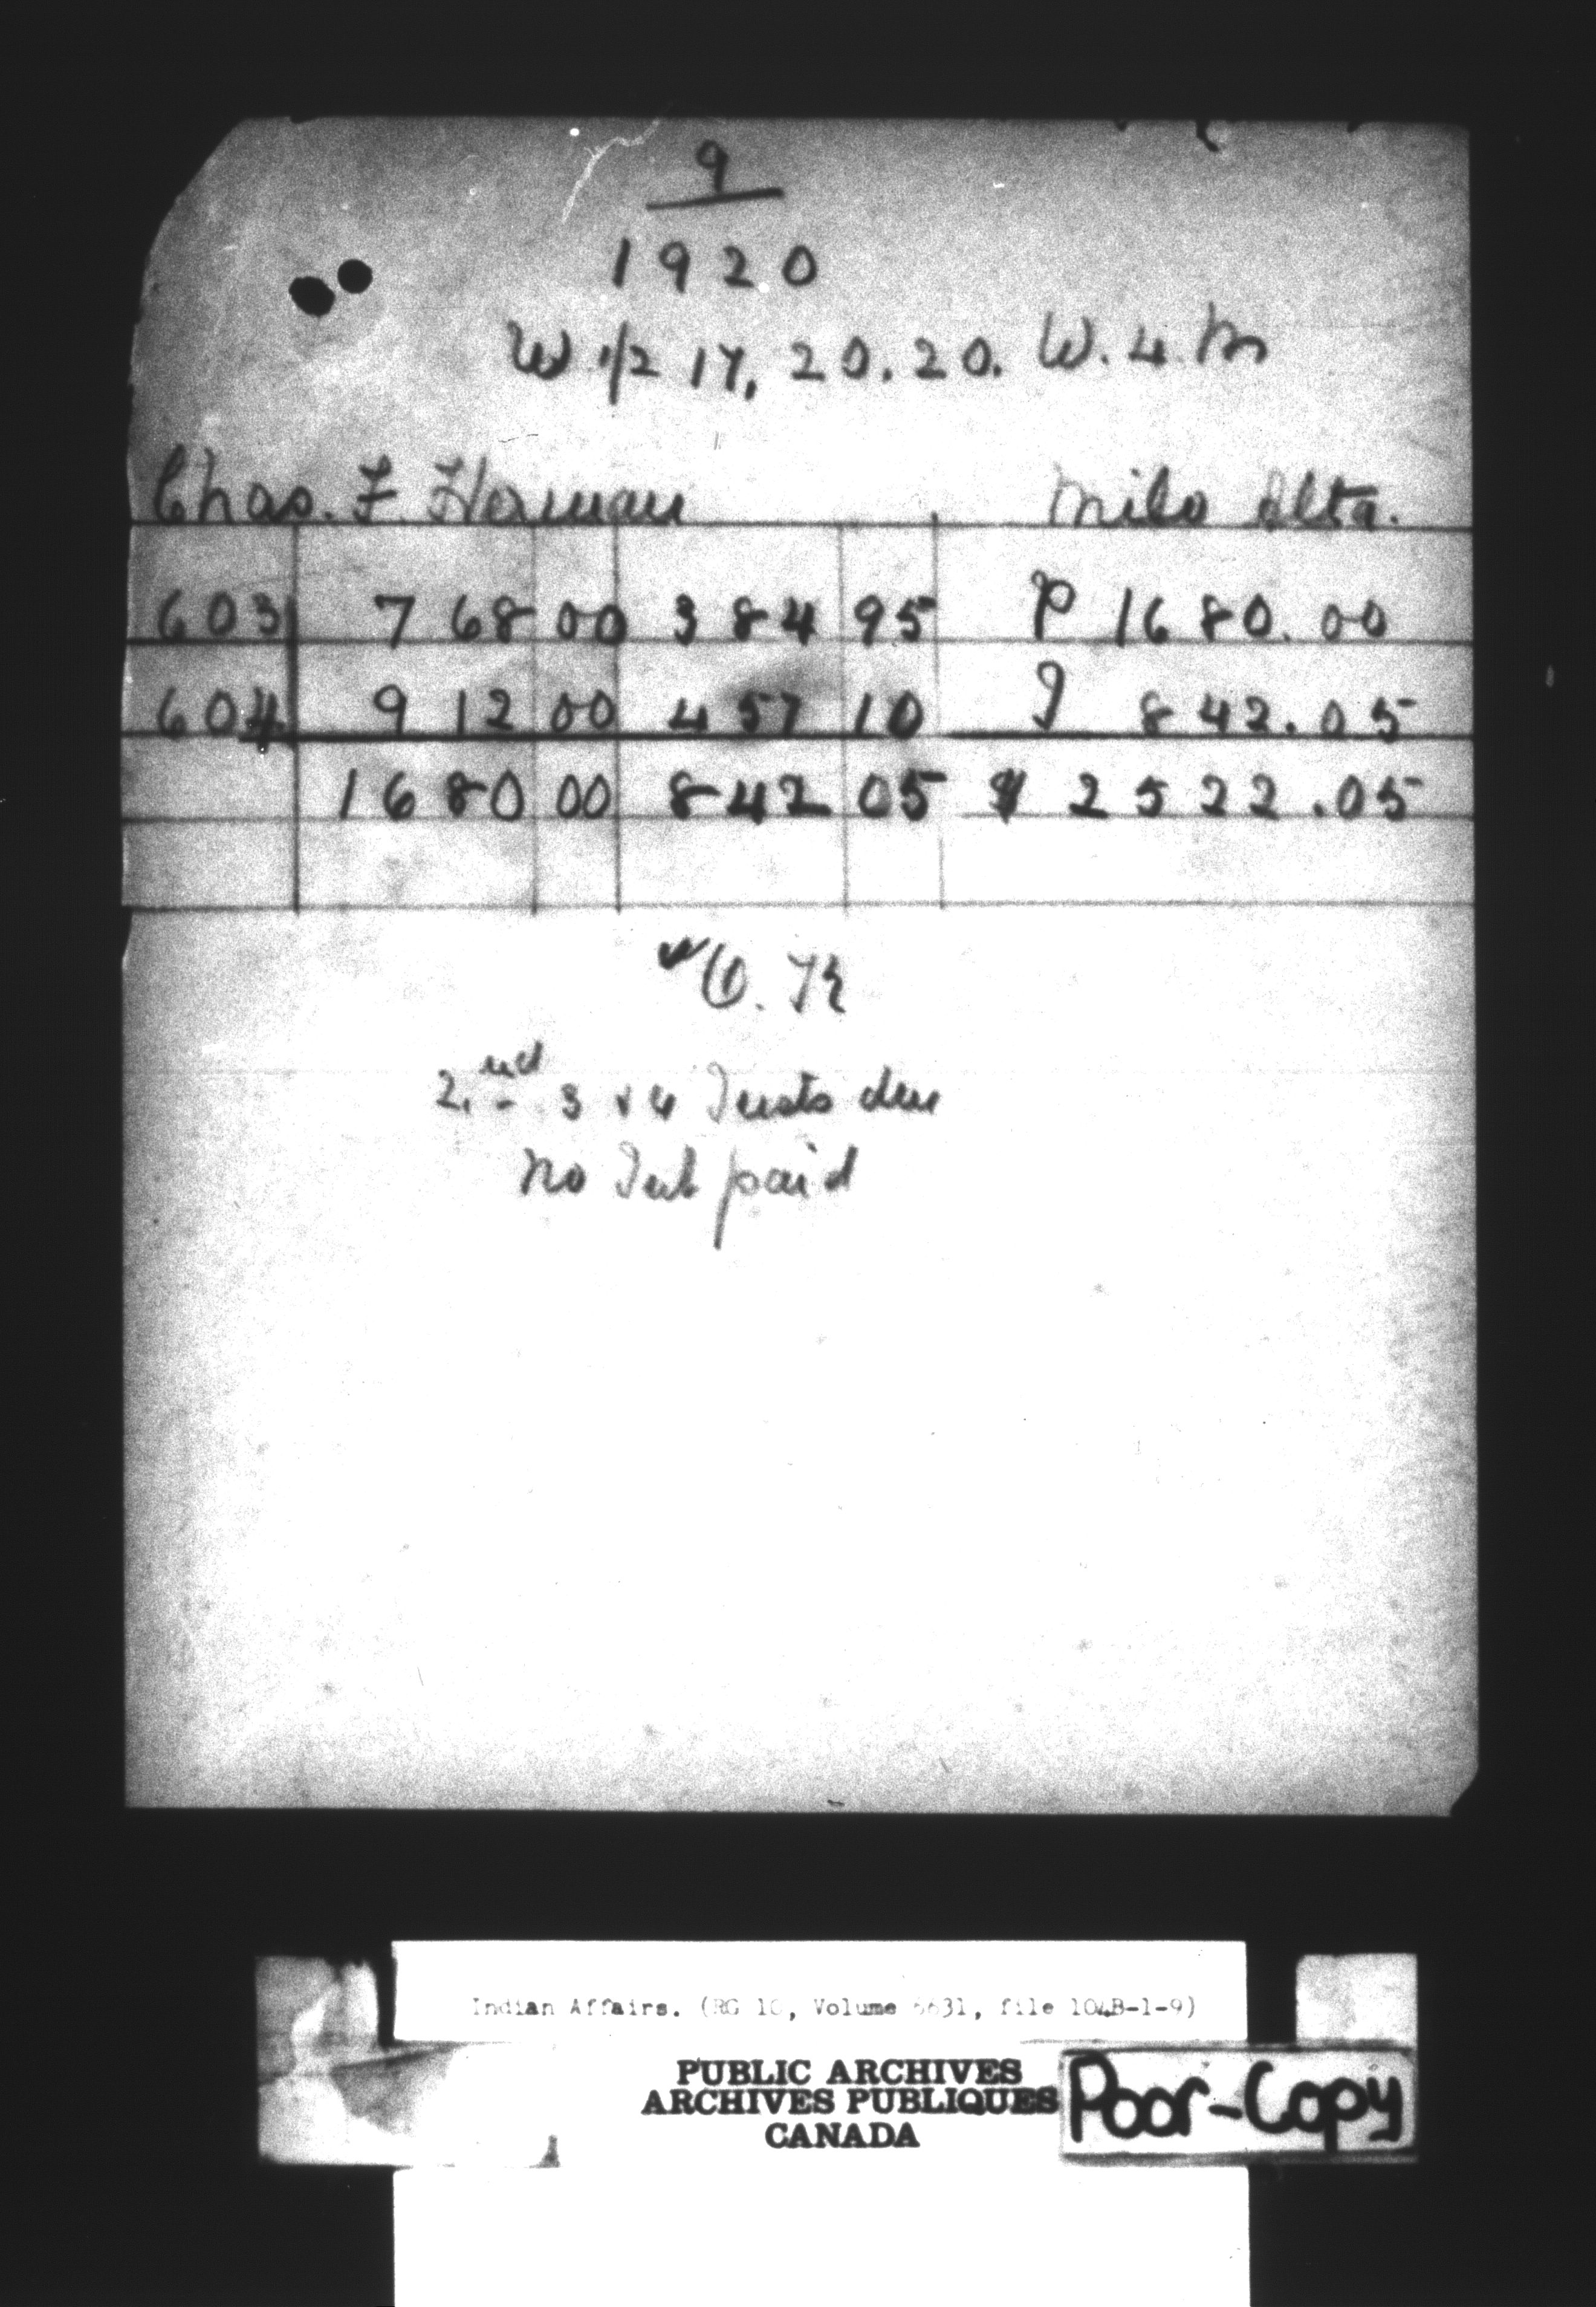 9
1920
W 1/2 17, 20. 20. W. 4 M
Chas. F. Herman Milo Alta.
603 768 00 384 95 P 1680.00
604 912 00 457 10 I 842.05
1680 00 842 05 $ 2522.05
O.K
2nd 3 & 4 Insts due
No Int paid
Indian Affairs. (RG 10, Volume 6631, file 104B-1-9)
PUBLIC ARCHIVES
ARCHIVES PUBLIQUES
CANADA
Poor-Copy